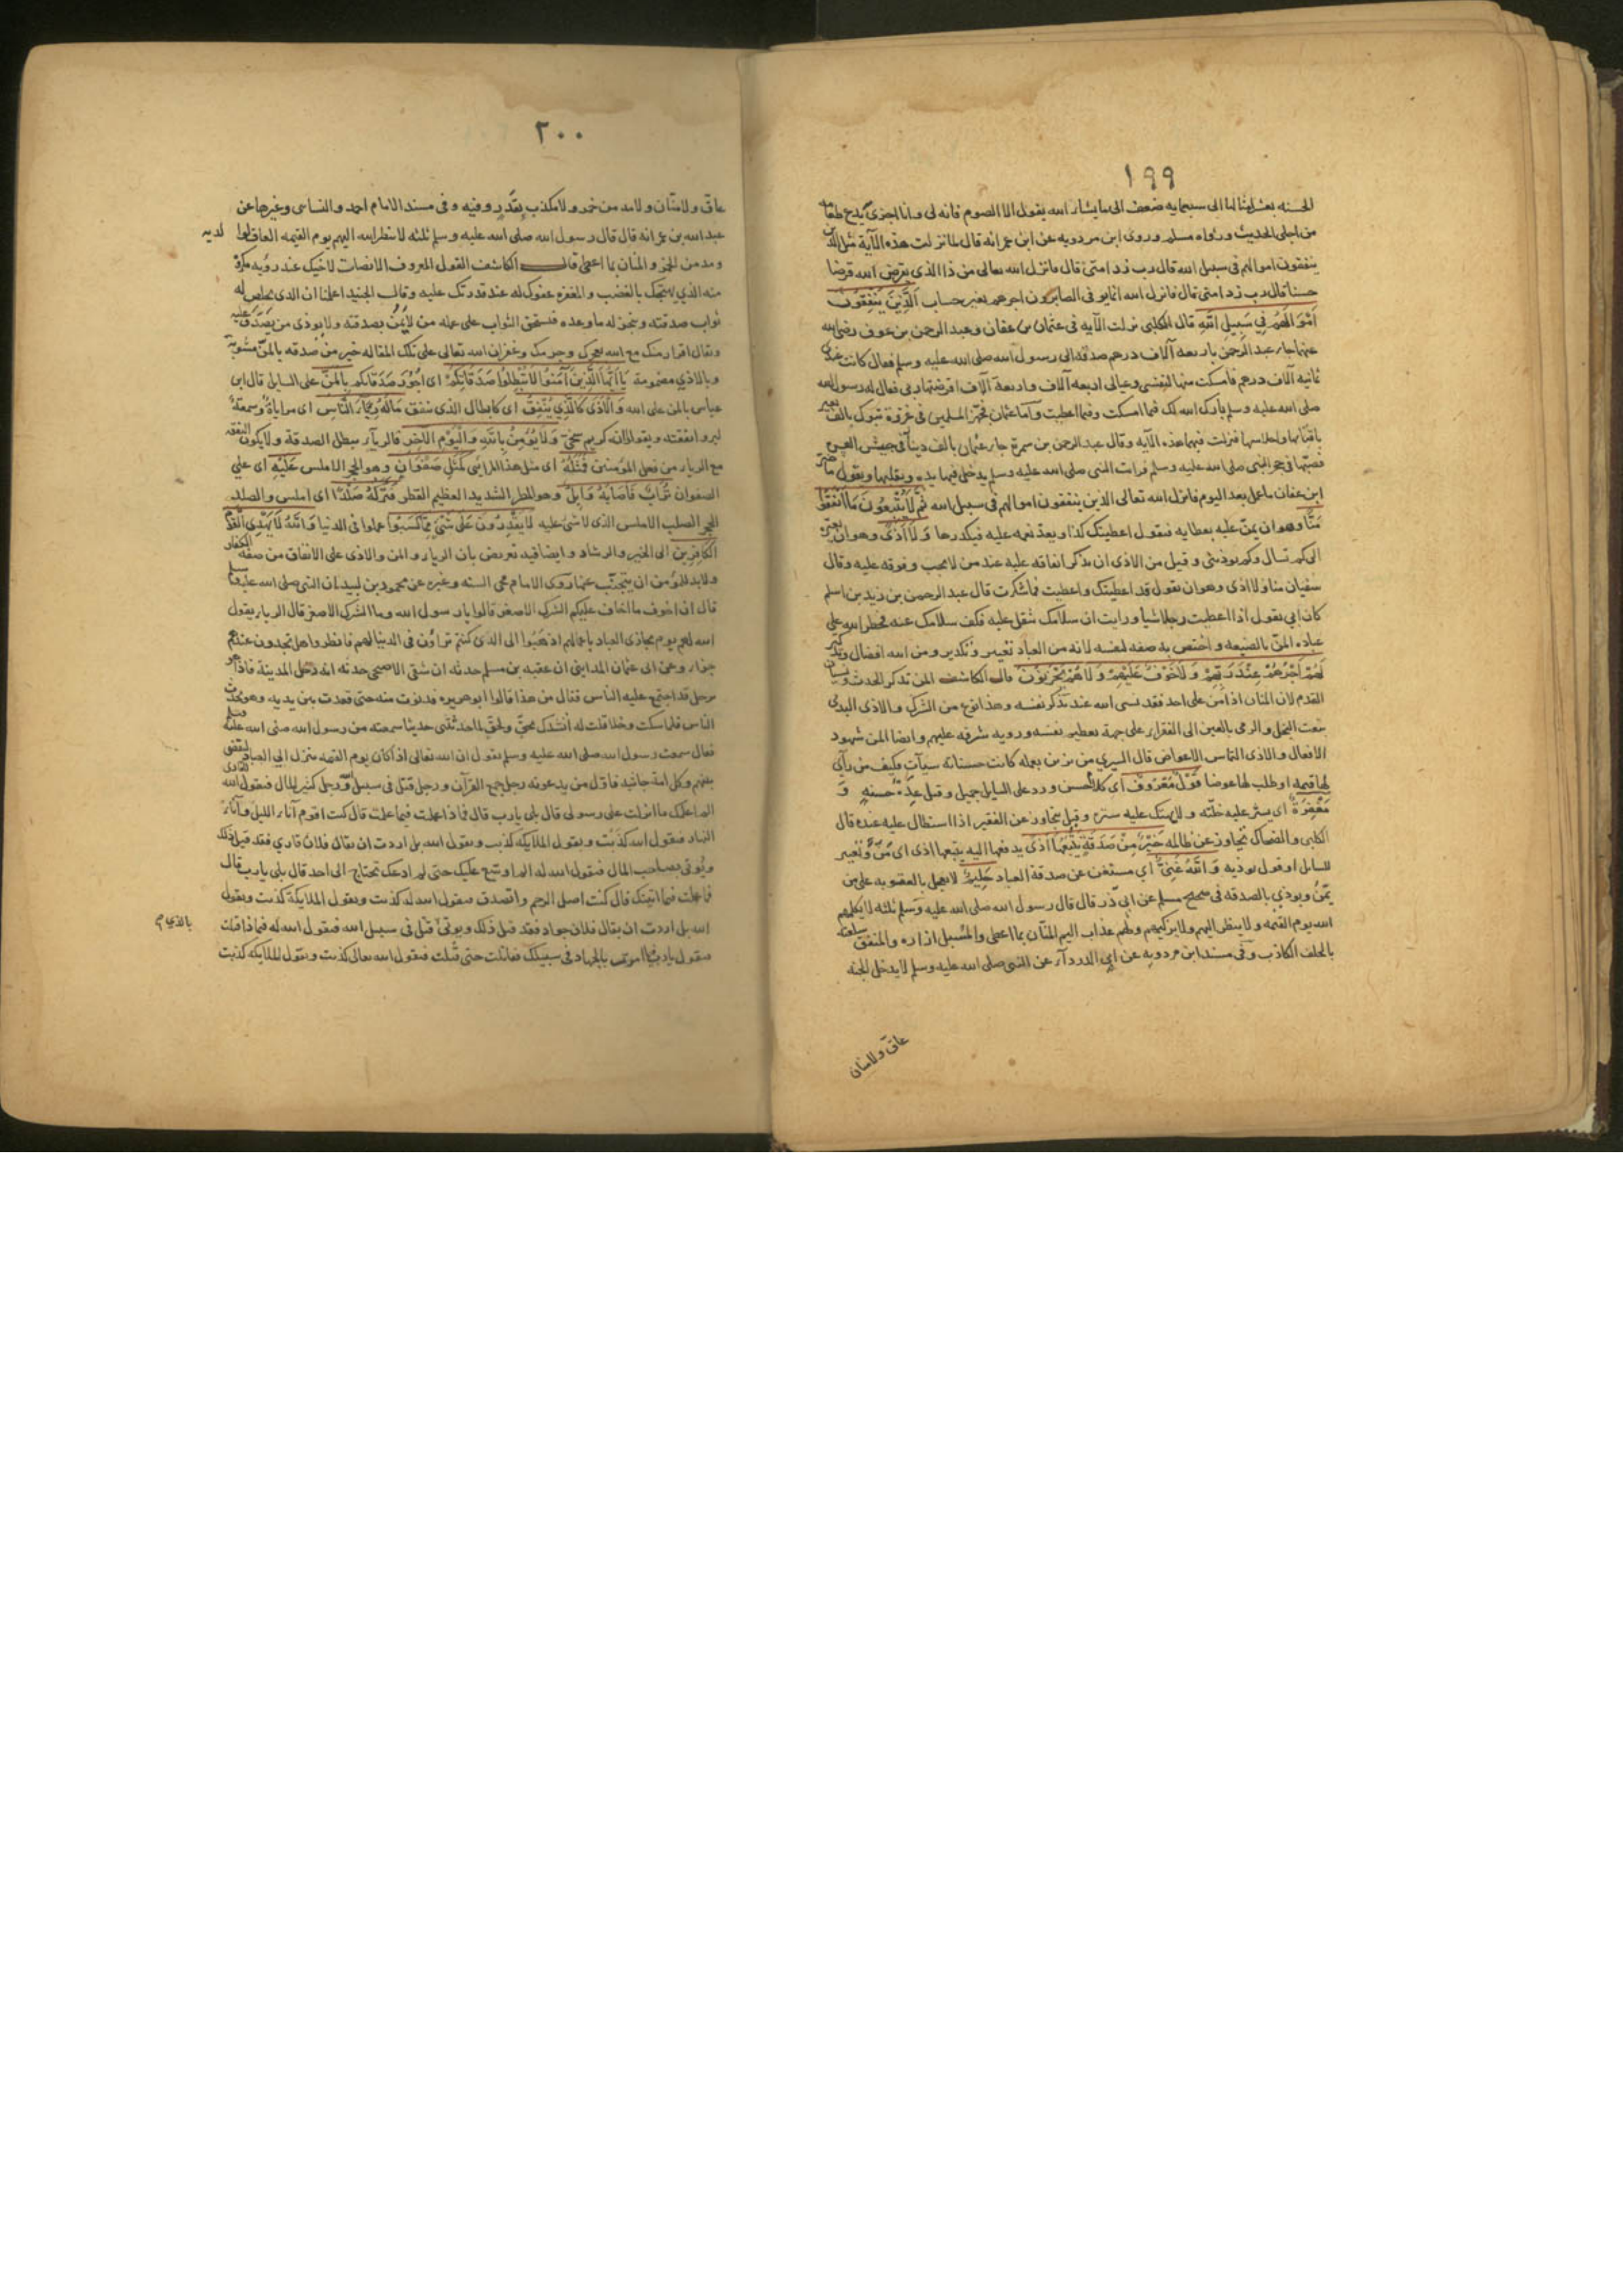 ١٩٩
الحسنة بعشر امثالها الى سبعمايه ضعف الى ما يشاء الله يقول الا الصوم فانه لى وانا اجزى به يدع طعامه
من اجلى الحديث ورواه مسلم وروى ابن مردويه عن ابن عمر انه قال لما نزلت هذه الآية مثل الذين
ينفقون اموالهم فى سبيل الله قال رب زد امتى قال فانزل الله تعالى من ذا الذى يقرض الله قرضا
حسنا قال رب زد امتى قال فانزل الله انما يوفى الصابرون اجرهم بغير حساب اَلَّذِينَ يُنْفِقُونَ
اَمْوَالَهُمْ فِي سَبِيلِ اللّٰهِ قال الكلبى نزلت الآيه فى عثمان بن عفان وعبد الرحمن بن عوف رضى الله
عنهما جاء عبد الرحمن باربعه آلاف درهم صدقه الى رسول الله صلى الله عليه وسلم فقال كانت عندى
ثمانيه آلاف درهم فامسكت منها لنفسى وعيالى اربعه آلاف واربعة آلاف اقرضتها ربى فقال له رسول الله
صلى الله عليه وسلم بارك الله لك فيما امسكت وفيما اعطيت واما عثمان فجهز المسلمين فى غزوة تبوك بالف بعير
باقتابها واحلاسها فنزلت فيهما هذه الآيه وقال عبد الرحمن بن سمرة جاء عثمان بالف دينار فى جيش العسرة
فصبها فى حجر النبى صلى الله عليه وسلم فرايت النبى صلى الله عليه وسلم يدخل فيها يده ويقلبها ويقول ما ضر
ابن عفان ما عمل بعد اليوم فانزل الله تعالى الذين ينفقون اموالهم فى سبيل الله ثُمَّ لَا يُتْبِعُونَ مَا اَنْفَقُوا
مَنًّا وهو ان يمن عليه بعطايه فيقول اعطيتك كذا ويعد نعمه عليه فيكدرها وَلَا اَذًى وهو ان يعيره
الى كم تسال وكم توذينى وقيل من الاذى ان يذكر انفاقه عليه عند من لا يحب وقوفه عليه وقال
سفيان منا ولا اذى وهو ان يقول قد اعطيتك واعطيت فما شكرت قال عبد الرحمن بن زيد بن اسلم
كان ابى يقول اذا اعطيت رجلا شيا ورايت ان سلامك يثقل عليه فكف سلامك عنه فحظر الله على
عباده المن بالصنيعه واختص به صفه لنفسه لانه من العباد تعيير وتكدير ومن الله افضال وتذكير
لَهُمْ اَجْرُهُمْ عِنْدَ رَبِّهِمْ وَلَا خَوْفٌ عَلَيْهِمْ وَلَا هُمْ يَحْزَنُونَ قال الكاشف المن تذكر الحدث ونسيان
القدم لان المنان اذا من على احد فقد نسى الله عند تذكر نفسه وهذا نوع من الشرك والاذى البدى
بنعت البخل والرمى بالعين الى الفقراء على جهة تعظيم نفسه ورويه شرفه عليهم وايضا المن شهود
الافعال والاذى التماس الاعواض قال السرى من تزين بعمله كانت حسناته سيآت فكيف من رآى
لها قيمه او طلب لها عوضا قَوْلٌ مَعْرُوفٌ اى كلام حسن ورد على السايل جميل وقيل عِدَة حسنه وَ
مَغْفِرَةٌ اى يستر عليه خلته ولا يهتك عليه ستره وقيل يتجاوز عن الفقير اذا استطال عليه عند رده قال
الكلبى والضحاك يتجاوز عن ظالمه خَيْرٌ مِنْ صَدَقَةٍ يَتْبَعُهَا اَذًى يدفعها اليه يتبعها اذى اى مَنٌّ وتعيير
للسايل او قول يوذيه وَاللّٰهُ غَنِيٌّ اى مستغن عن صدقة العباد حَلِيمٌ لا يعجل بالعقوبه على من
يمنّ ويوذى بالصدقه فى صحيح مسلم عن ابى ذر قال قال رسول الله صلى الله عليه وسلم ثلثه لا يكلمهم
الله يوم القيمه ولا ينظر اليهم ولا يزكيهم ولهم عذاب اليم المنّان بما اعطى والمسبل ازاره والمنفق سلعته
بالحلف الكاذب وفى مسند ابن مردويه عن ابى الدرداء عن النبى صلى الله عليه وسلم لا يدخل الجنه
عاق ولا منان
٢٠٠
عاق ولا منّان ولا مدمن خمر ولا مكذب بقَدَر وفيه وفى مسند الامام احمد والنساى وغيرهما عن
عبد الله بن عمر انه قال قال رسول الله صلى الله عليه وسلم ثلثه لا ينظر الله اليهم يوم القيمه العاق لوالديه
ومدمن الخمر والمنان بما اعطى قال الكاشف القول المعروف الانصات لاخيك عند رويه مكروه
منه الذى يهيجك بالغضب والمغفره عفوك له عند قدرتك عليه وقال الجنيد اعلمنا ان الذى يخلص له
ثواب صدقته وينجز له ما وعده فيستحق الثواب على عمله من لا يَمُنُّ بصدقته ولا يوذى من يَصَدَّق عليه
ويقال اقرار منك مع الله بعجزك وجرمك وغفران الله تعالى على تلك المقاله خير من صدقه بالمنّ مشوبة
وبالاذى مضمومة يَا اَيُّهَا الَّذِينَ آمَنُوا لَا تُبْطِلُوا صَدَقَاتِكُمْ اى اجور صدقاتكم بِالْمَنِّ على السايل قال ابن
عباس بالمن على الله وَالْاَذٰى كَالَّذِي يُنْفِقُ اى كابطال الذى ينفق مَالَهُ رِئَاءَ النَّاسِ اى مراياة وسمعة
ليروا نفقته ويقولوا انه كريم سخىّ وَلَا يُؤْمِنُ بِاللّٰهِ وَالْيَوْمِ الْآخِرِ فالريآء يبطل الصدقة ولا يكون النفقه
مع الرياء من فعل المؤمنين فَمَثَلُهُ اى مثل هذا المرائى كَمَثَلِ صَفْوَانٍ وهو الحجر الاملس عَلَيْهِ اى على
الصفوان تُرَابٌ فَاَصَابَهُ وَابِلٌ وهو المطر الشديد العظيم القطر فَتَرَكَهُ صَلْدًا اى املس والصلد
الحجر الصلب الاملس الذى لا شئ عليه لَا يَقْدِرُونَ عَلٰى شَيْءٍ مِمَّا كَسَبُوا عملوا فى الدنيا وَاللّٰهُ لَا يَهْدِي الْقَوْمَ
الْكَافِرِينَ الى الخير والرشاد وايضا فيه تعريض بان الرياء والمن والاذى على الانفاق من صفه الكفار
ولا بد للمؤمن ان يتجنّب عنها روى الامام محى السنه وغيره عن محمود بن لبيد ان النبى صلى الله عليه وسلم
قال ان اخوف ما اخاف عليكم الشرك الاصغر قالوا يا رسول الله وما الشرك الاصغر قال الرياء يقول
الله لهم يوم يجازى العباد باعمالهم اذهبوا الى الذى كنتم تراؤن فى الدنيا لهم فانظروا هل تجدون عندهم
جزاء وعن ابى عثمان المداينى ان عقبه بن مسلم حدثه ان شفى الاصبحى حدثه انه دخل المدينة فاذا هو
برجل قد اجتمع عليه الناس فقال من هذا قالوا ابو هريره فدنوت منه حتى قعدت بين يديه وهو يحدث
الناس فلما سكت وخلا قلت له انشدك بحق ولحق لما حدثتنى حديثا سمعته من رسول الله صلى الله عليه وسلم
فقال سمعت رسول الله صلى الله عليه وسلم يقول ان الله تعالى اذا كان يوم القيمه ينزل الى العباد ليقضى
بينهم وكل امة جاثيه فاوّل من يدعو به رجل جمع القرآن ورجل قتل فى سبيل الله ورجل كثير المال فيقول الله للقارى
الم اعلمك ما انزلت على رسولى قال بلى يا رب قال فماذا عملت فيما علمت قال كنت اقوم آناء الليل وآناء
النهار فيقول الله كذبت ويقول الملايكه كذبت ويقول الله بل اردت ان يقال فلان قارى فقد قيل ذلك
ويُوتى بصاحب المال فيقول الله له الم اوسّع عليك حتى لم ادعك تحتاج الى احد قال بلى يا رب قال
فما عملت فيما اتيتك قال كنت اصل الرحم واتصدق فيقول الله له كذبت ويقول الملايكة كذبت ويقول
الله بل اردت ان يقال فلان جواد فقد قيل ذلك ويوتى بالذى قُتِل فى سبيل الله فيقول الله له فماذا قتلت
فيقول يا رب امرت بالجهاد فى سبيلك فقاتلت حتى قُتلت فيقول الله تعالى كذبت ويقول الملايكه كذبت